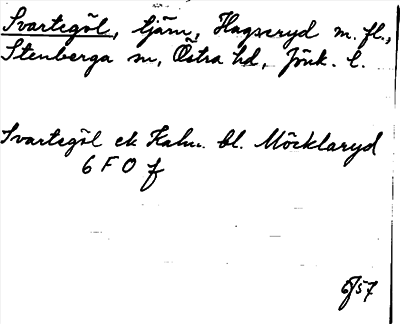 Svartegöl, tjärn, Hagseryd m. fl.,
Stenberga sn, Östra hd, Jönk. l.
Svartegöl ek Kalm. bl. Möcklaryd
6 F 0 f
6/57